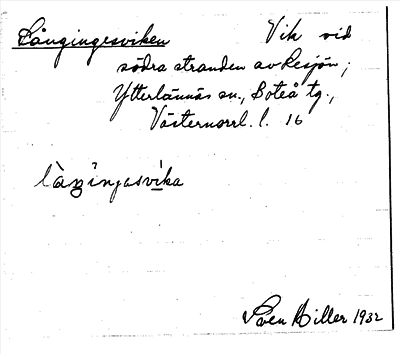 Långingesviken Vik vid
södra stranden av Resjön;
Ytterlännäs sn., Boteå tg.,
Västernorrl. l. 16
Sven Hiller 1932